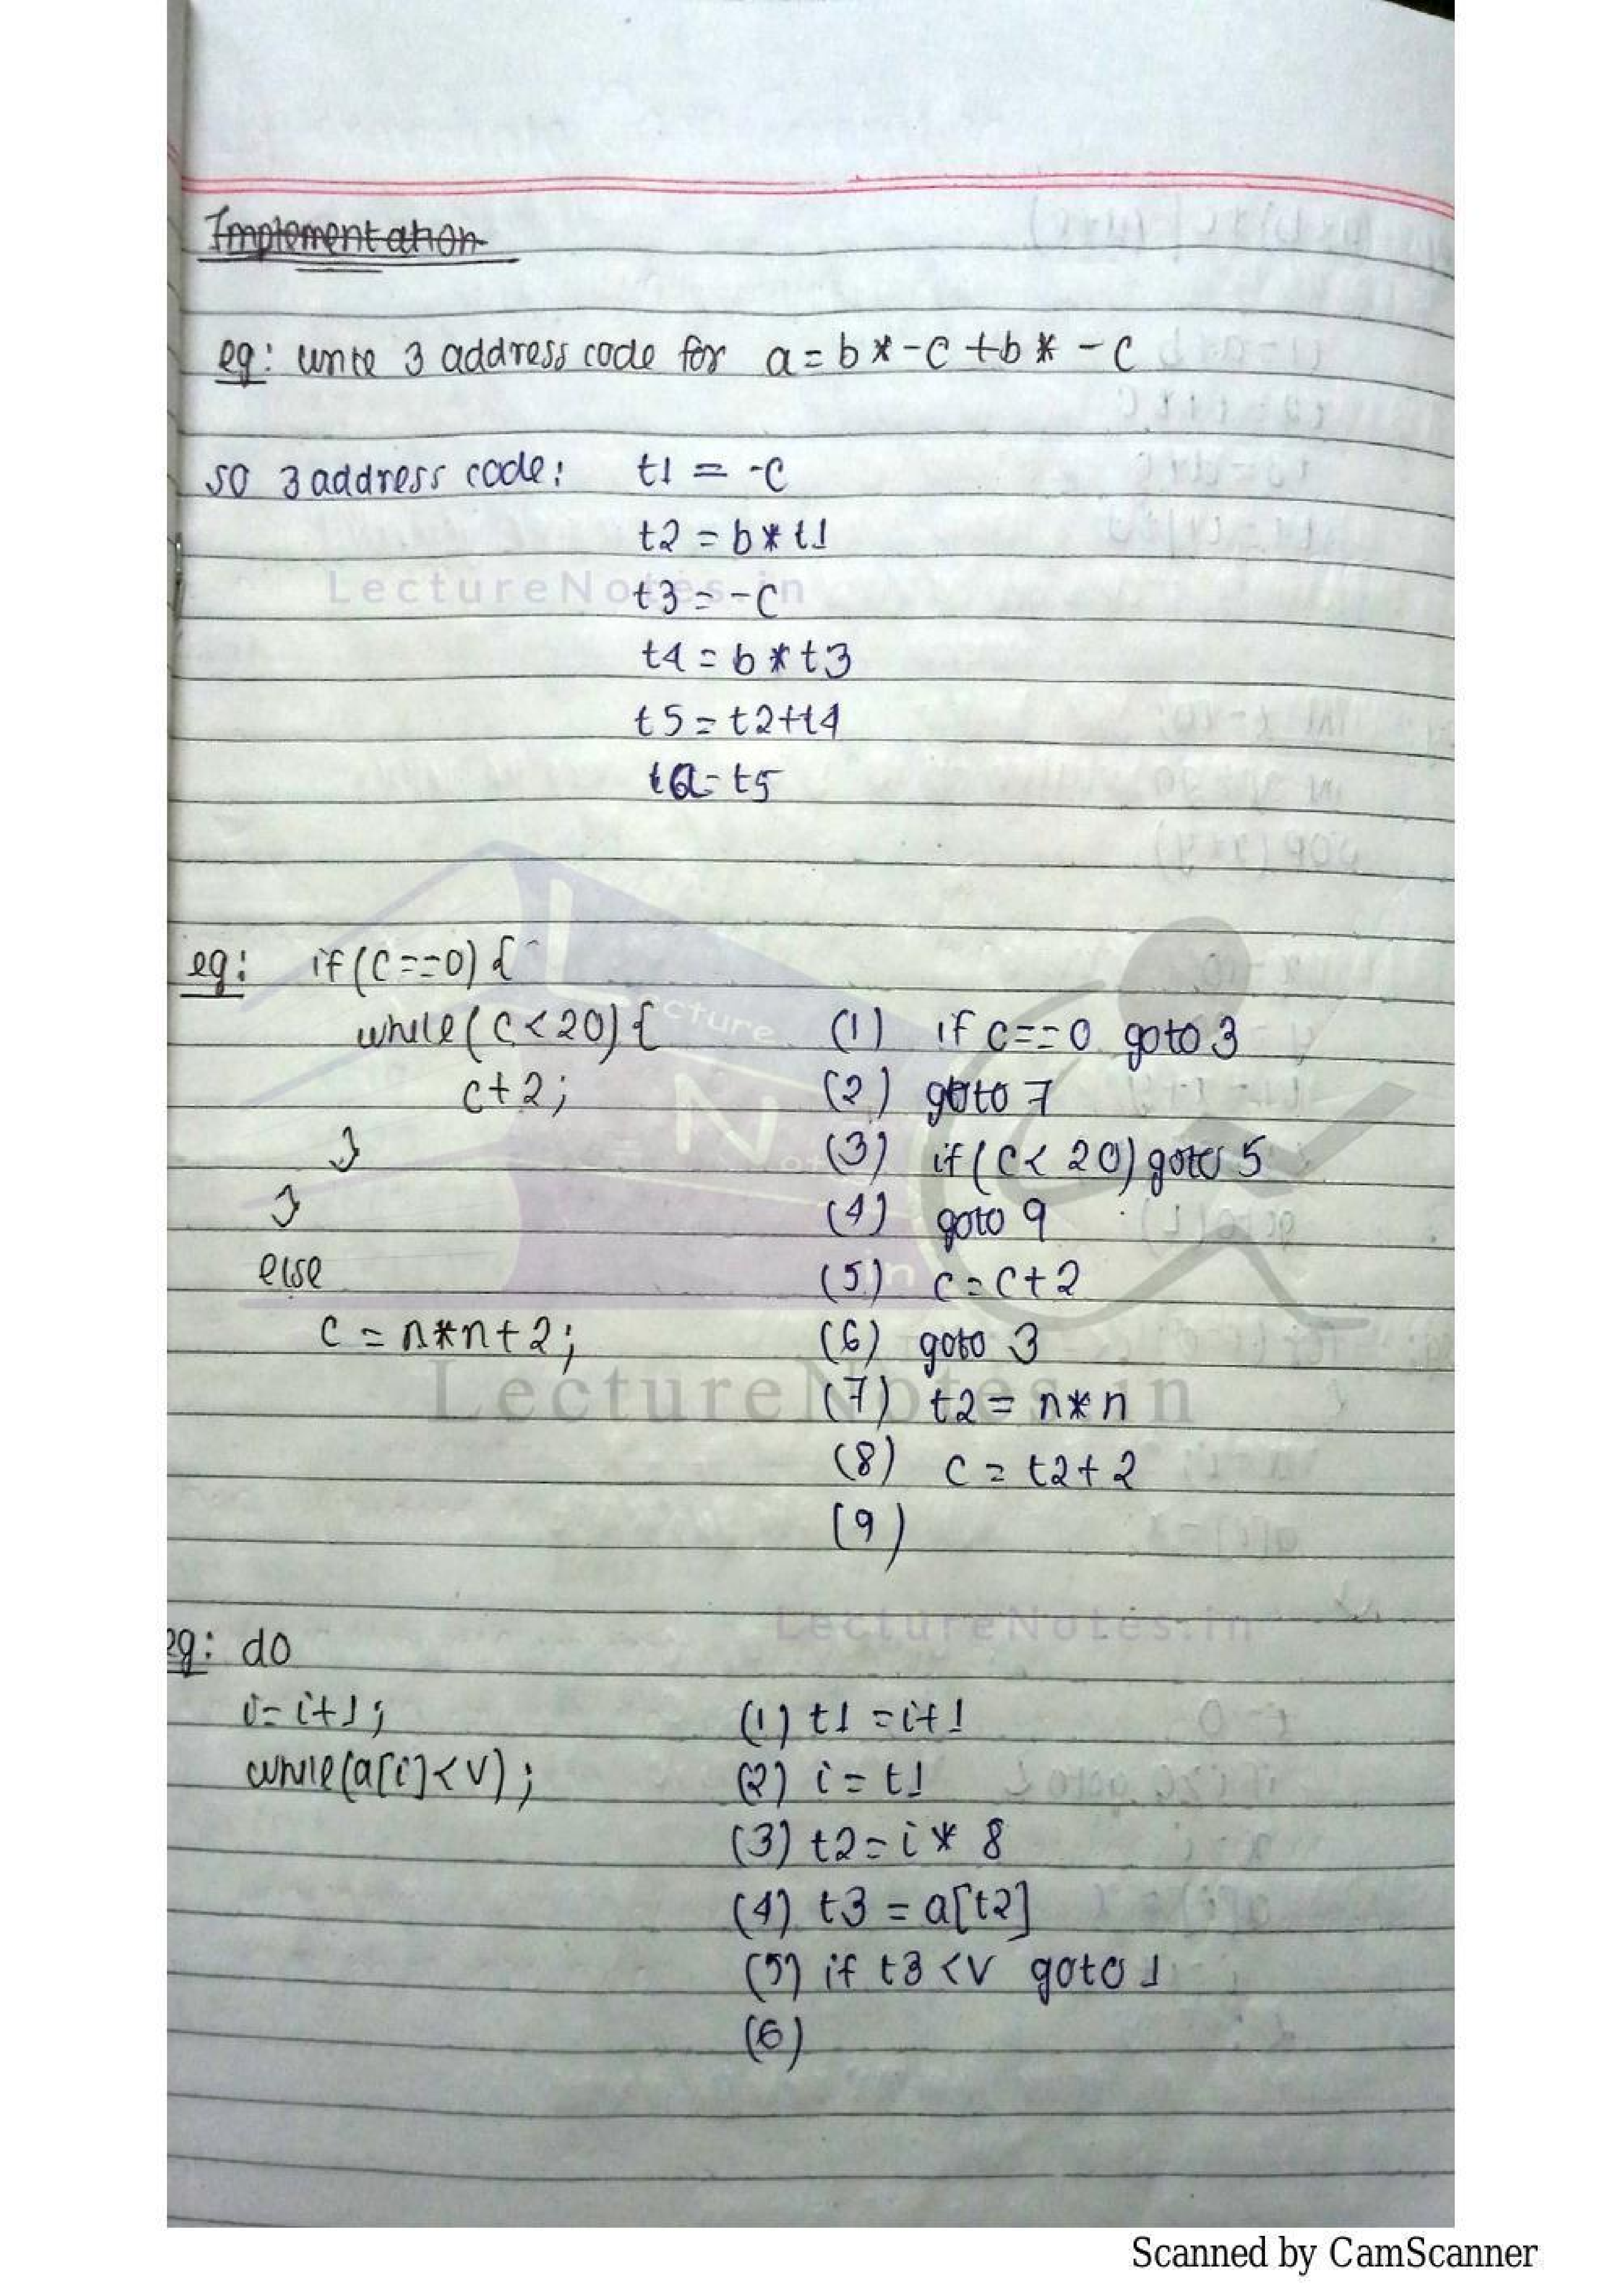 Implementation
eg: write 3 address code for a = b * - c + b * - c
so 3 address code: t1 = -c
t2 = b * t1
LectureNotes.in
t3 = -c
t4 = b * t3
t5 = t2+t4
a = t5
eg: if (c==0) {
while (c < 20) {
c+2;
}
}
else
c = n*n+2;
(1) if c==0 goto 3
(2) goto 7
(3) if (c < 20) goto 5
(4) goto 9
(5) c = c+2
(6) goto 3
(7) t2 = n*n
(8) c = t2+2
(9)
Lecture
Notes
in
LectureNotes.in
LectureNotes.in
eg: do
i = i+1;
while (a[i] < v);
(1) t1 = i+1
(2) i = t1
(3) t2 = i * 8
(4) t3 = a[t2]
(5) if t3 < v goto 1
(6)
Scanned by CamScanner